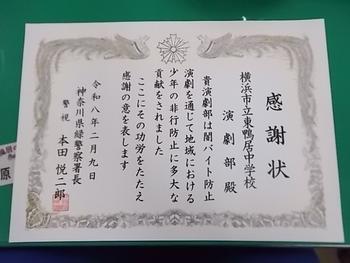 感謝状
横浜市立東鴨居中学校
演劇部殿
貴演劇部は闇バイト防止
演劇を通じて地域における
少年の非行防止に多大な
貢献をされました
ここにその功労をたたえ
感謝の意を表します
令和八年二月九日
神奈川県緑警察署長
警視 本田悦二郎
原